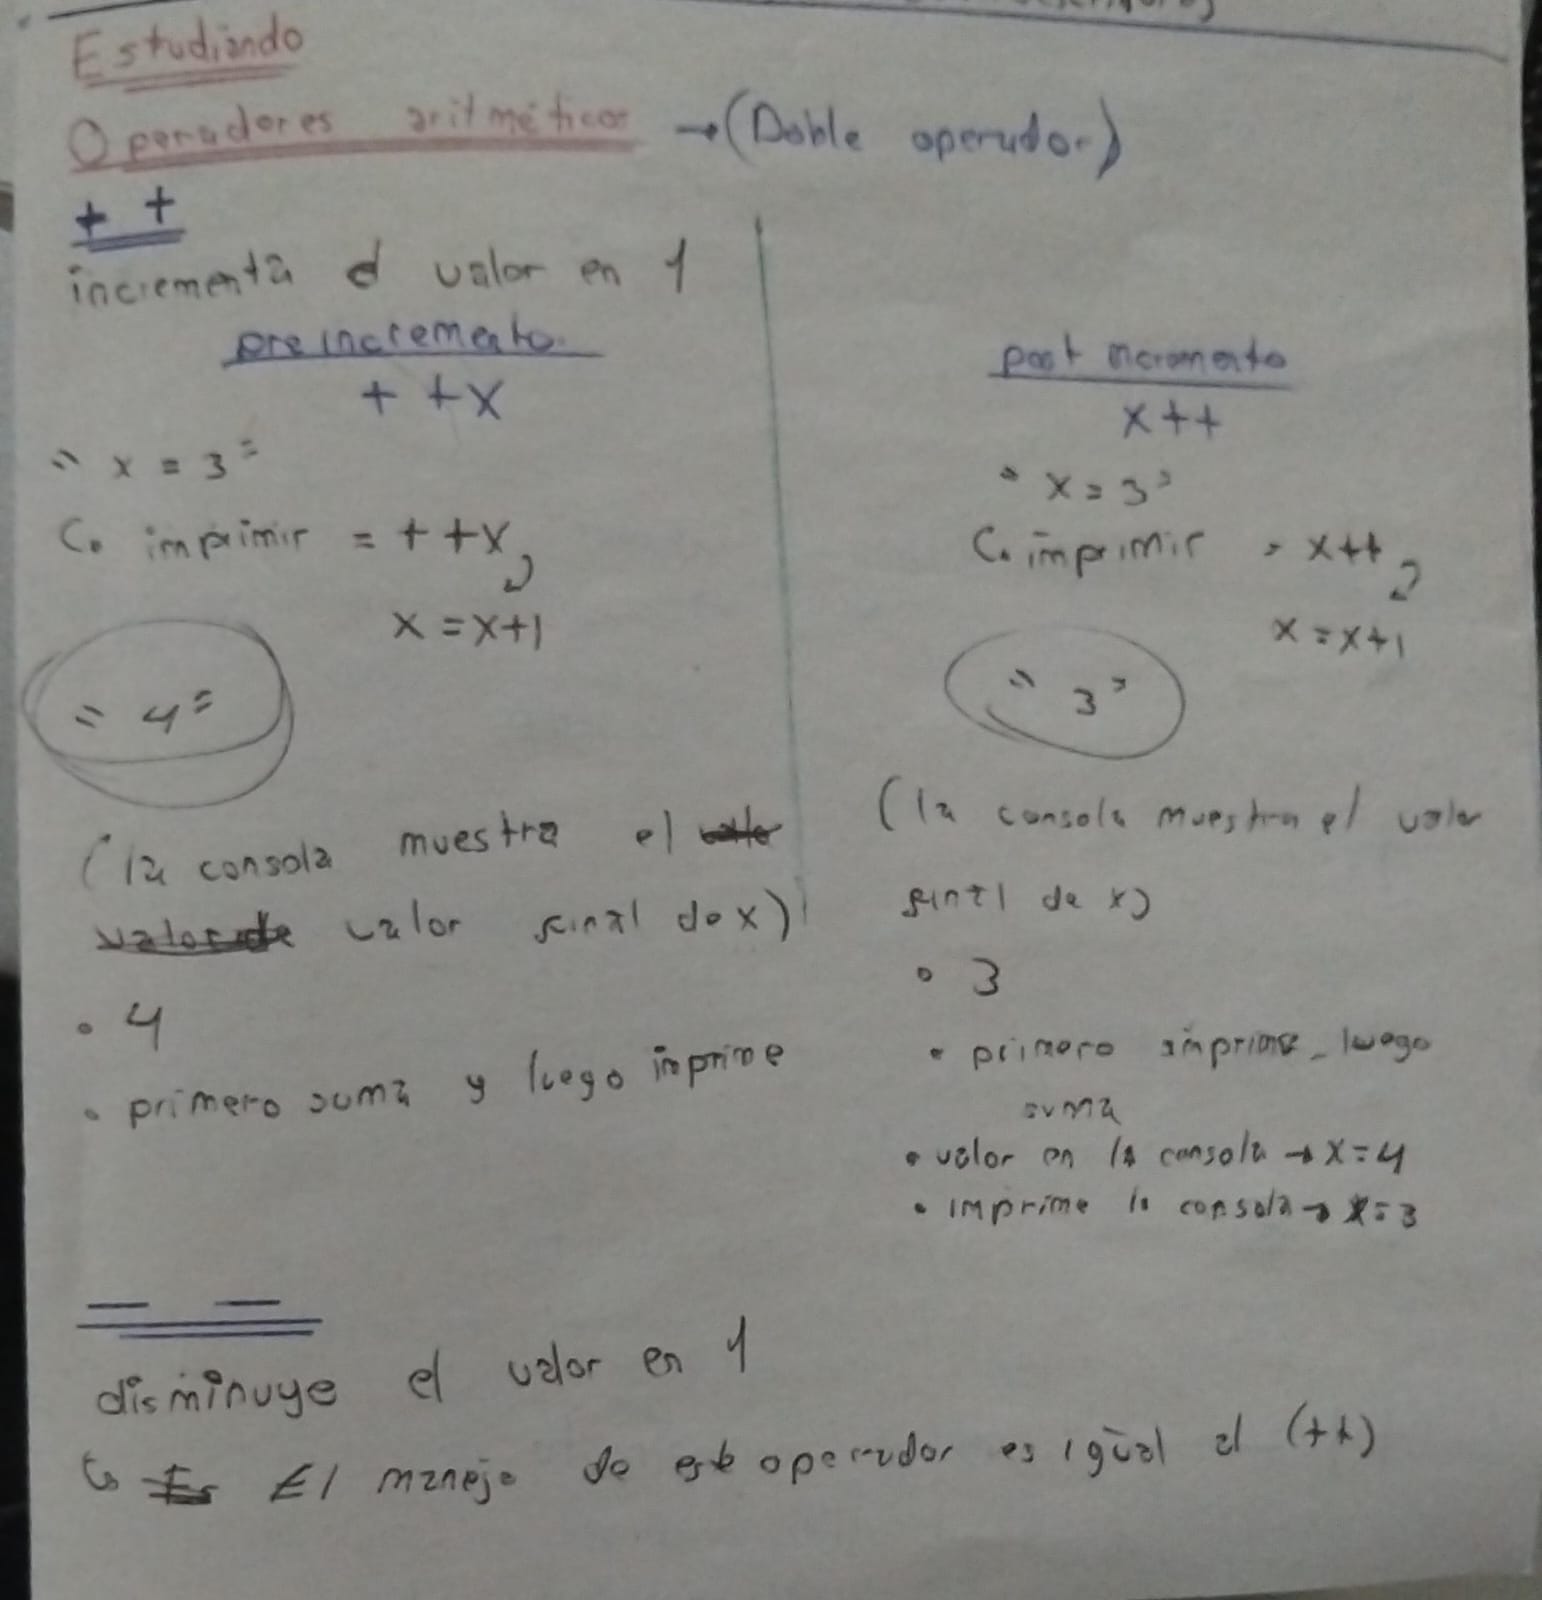 Estudiando
Operadores aritméticos → (Doble operador)
+ +
incrementa el valor en 1
pre incremento
+ +x
" x = 3 "
imprimir = + +x
x = x+1
" 4 "
(la consola muestra el
valor final de x)
• 4
• primero suma y luego imprime
post incremento
x ++
" x = 3 "
imprimir = x++
x = x+1
" 3 "
(la consola muestra el valor
final de x)
• 3
• primero imprime luego
suma
• valor en la consola → x=4
• imprime la consola → x=3
— —
disminuye el valor en 1
El manejo de este operador es igual al (++)